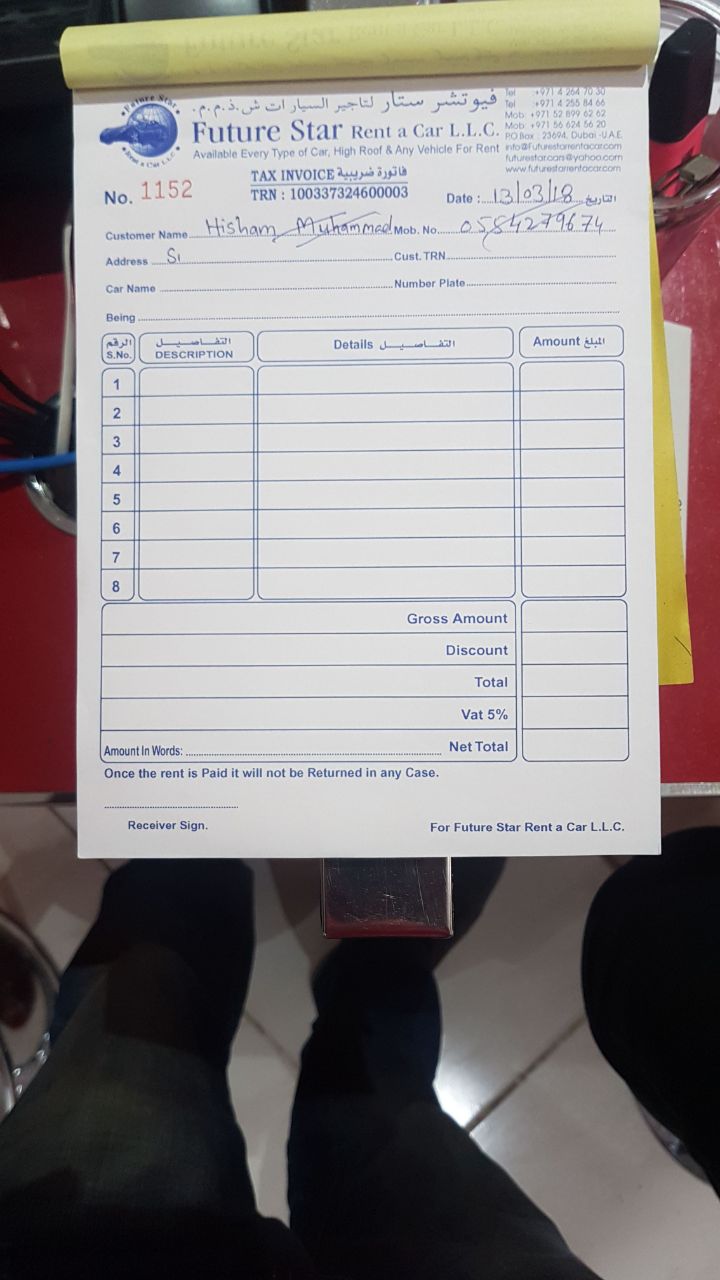 Future Star
Rent a Car L.L.C
فيوتشر ستار لتاجير السيارات ش.ذ.م.م.
Future Star Rent a Car L.L.C.
Available Every Type of Car, High Roof & Any Vehicle For Rent
Tel : +971 4 264 70 30
Tel : +971 4 255 84 66
Mob: +971 52 899 62 62
Mob: +971 56 624 56 20
P.O.Box : 23694, Dubai -U.A.E.
info@Futurestarrentacar.com
futurestarcars@yahoo.com
www.futurestarrentacar.com
TAX INVOICE فاتورة ضريبية
No. 1152 TRN : 100337324600003 Date : 13/03/18 التاريخ
Customer Name Hisham Muhammad Mob. No. 0554279674
Address Cust. TRN
Car Name Number Plate
Being
الرقم التفاصيل Details التفاصيل Amount المبلغ
S.No. DESCRIPTION
1
2
3
4
5
6
7
8
Gross Amount
Discount
Total
Vat 5%
Amount In Words: Net Total
Once the rent is Paid it will not be Returned in any Case.
Receiver Sign. For Future Star Rent a Car L.L.C.